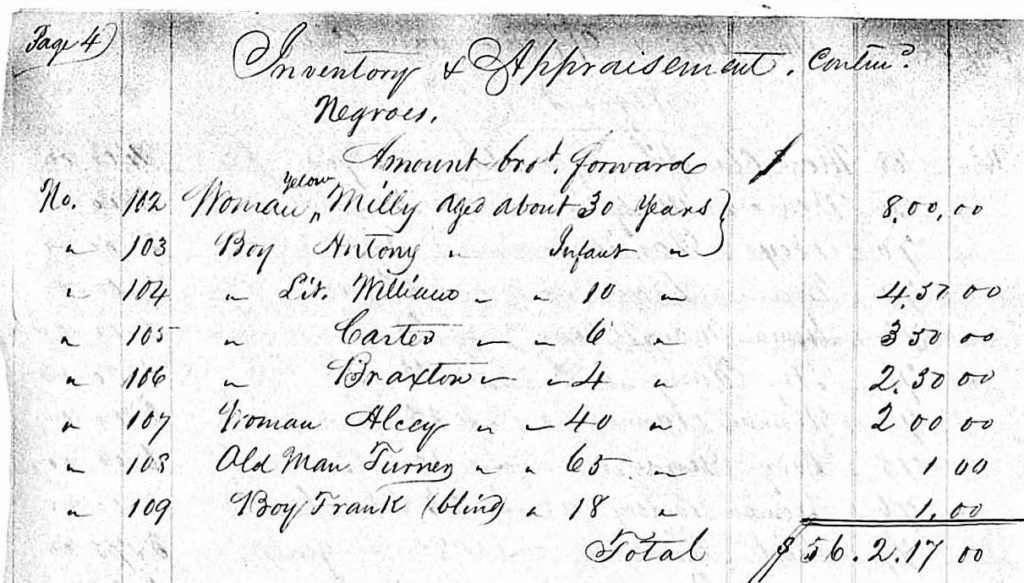 Page 4)
Inventory & Appraisement. Contin.d
Negroes.
Amount brot. forward $
No. 102 Woman yelow Milly aged about 30 years } 8,00,00
" 103 Boy Antony " Infant "
" 104 " Lit. William " " 10 " 4,50 00
" 105 " Carter " " 6 " 3 50 00
" 106 " Braxton " " 4 " 2.50 00
" 107 Woman Alcey " " 40 " 2 00 00
" 108 Old Man Turney " " 65 " 1 00
" 109 Boy Frank (blind) " 18 " 1.00
Total $ 56.2.17 00